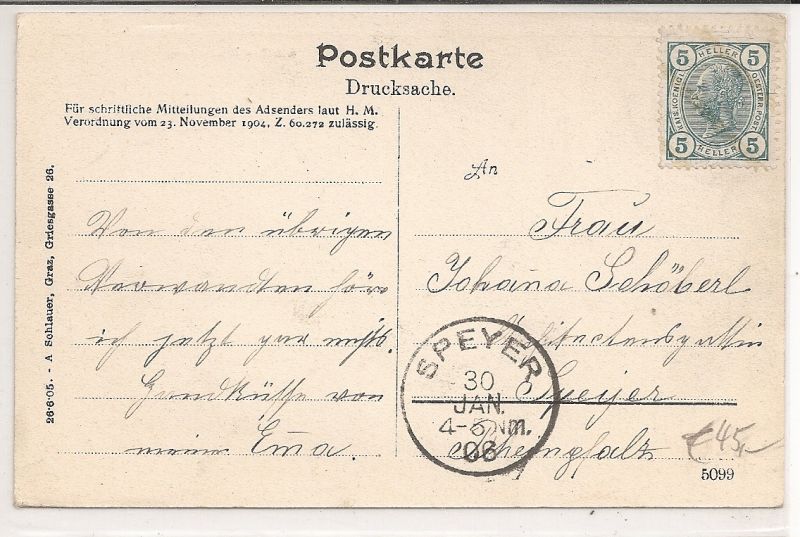 Postkarte
Drucksache.
Für schriftliche Mitteilungen des Adsenders laut H. M.
Verordnung vom 23. November 1904, Z. 60.272 zulässig.
5 HELLER 5
KAIS. KOENIGL. OESTERR. POST
5 HELLER 5
26·6·05. - A Schlauer, Graz, Griesgasse 26.
Von den übrigen
Verwandten höre
ich jetzt gar nichts.
Handküsse von
meiner Ema.
An
Frau
Johana Schöberl
Architectensgattin
Speyer
Rheinpfalz
SPEYER
30
JAN.
4-5 Nm.
06
€ 45,-
5099